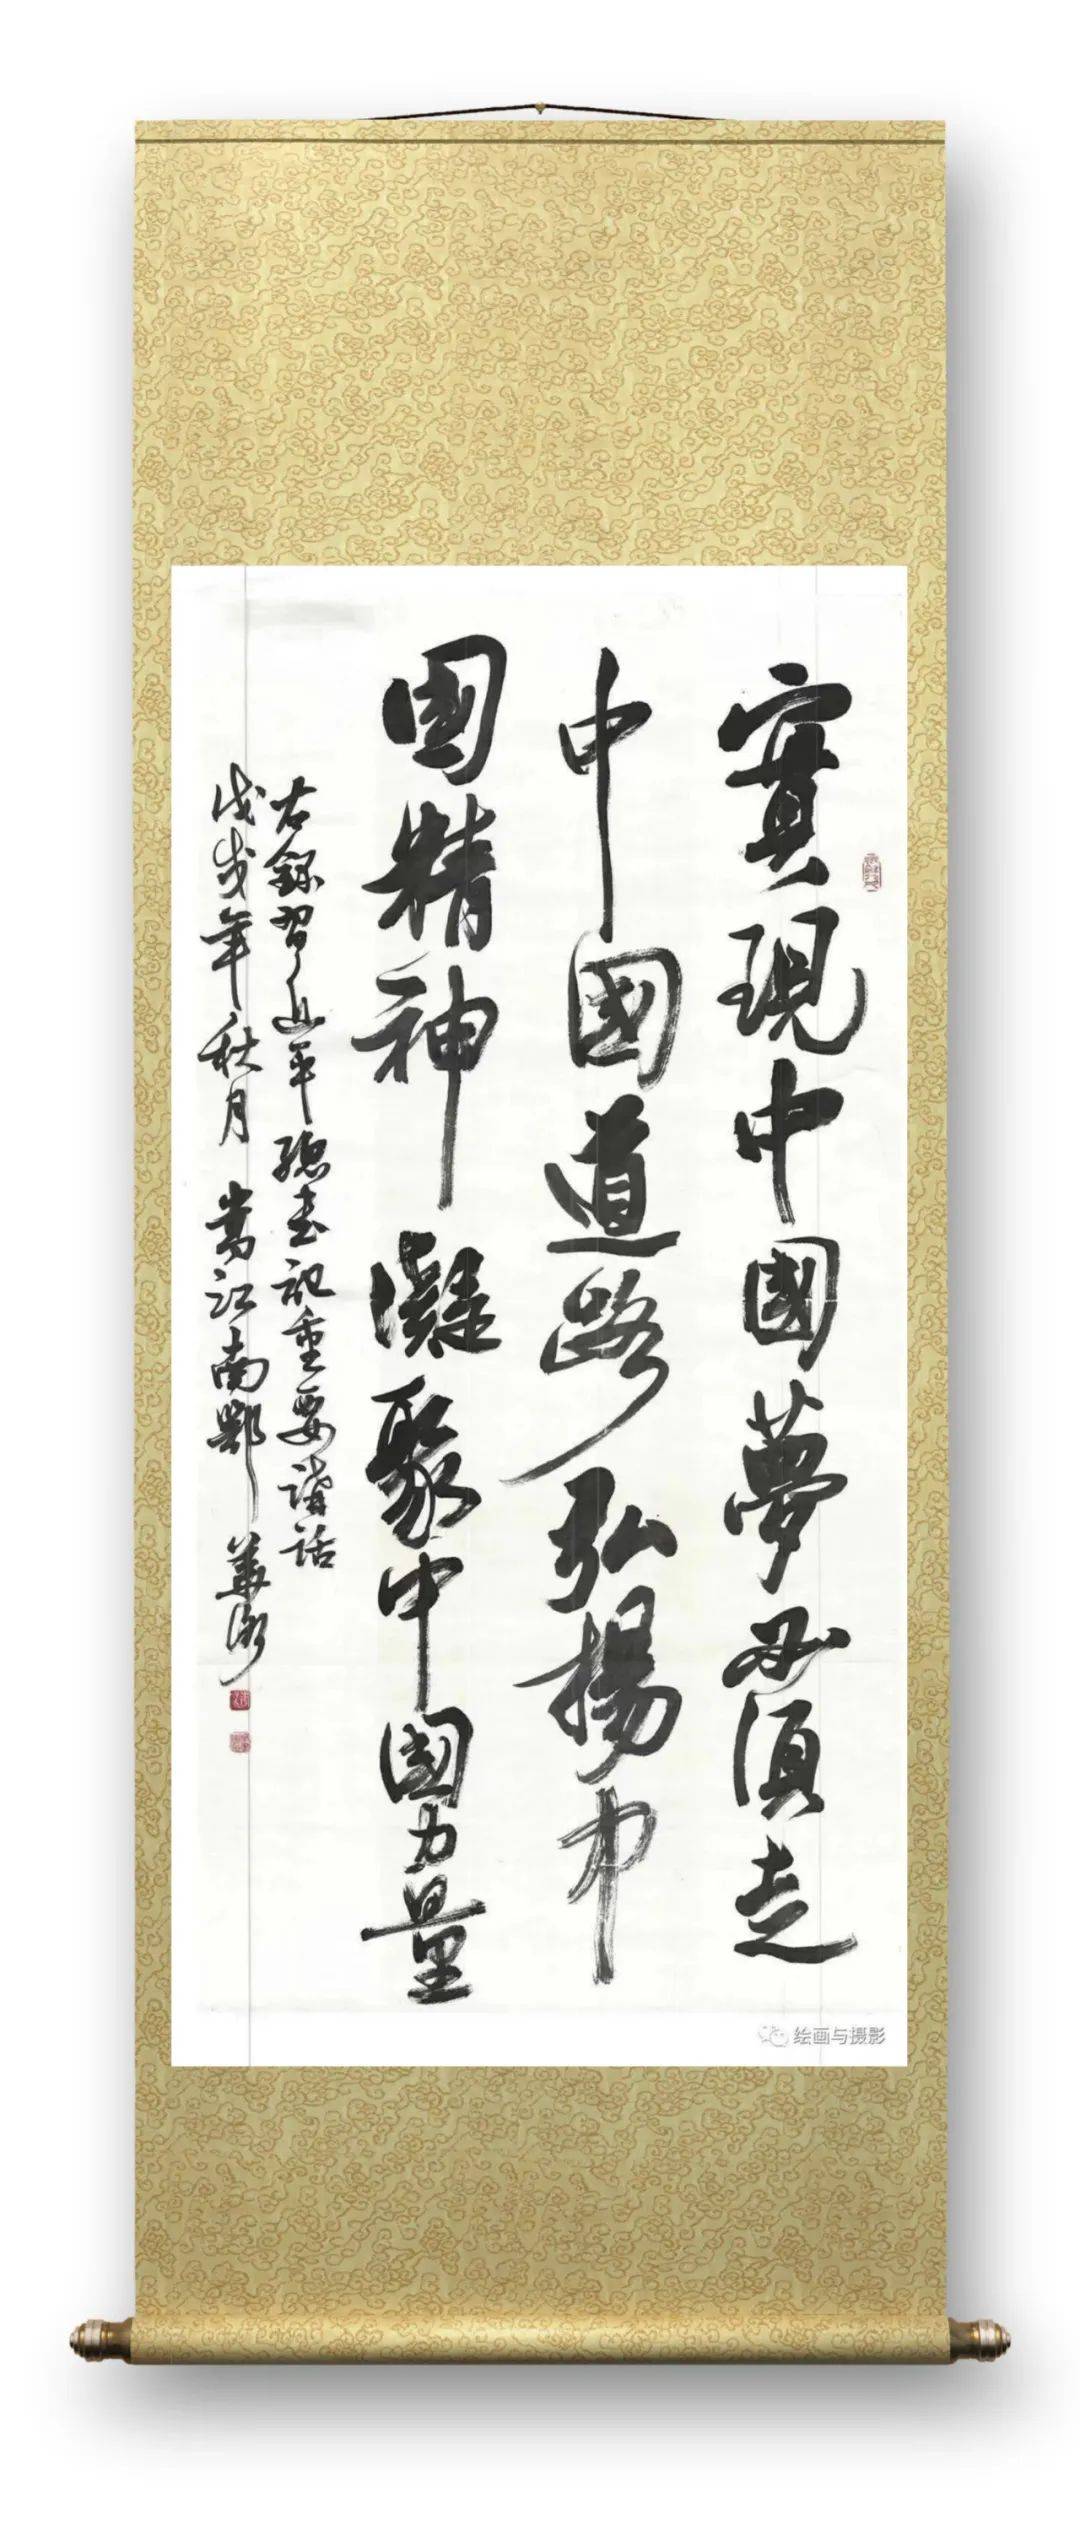 實現中國夢必須走
中國道路弘揚中
國精神凝聚中國力量
右錄習近平總書記重要講話
戊戌年秋月 嵩江南鄂 華
绘画与摄影